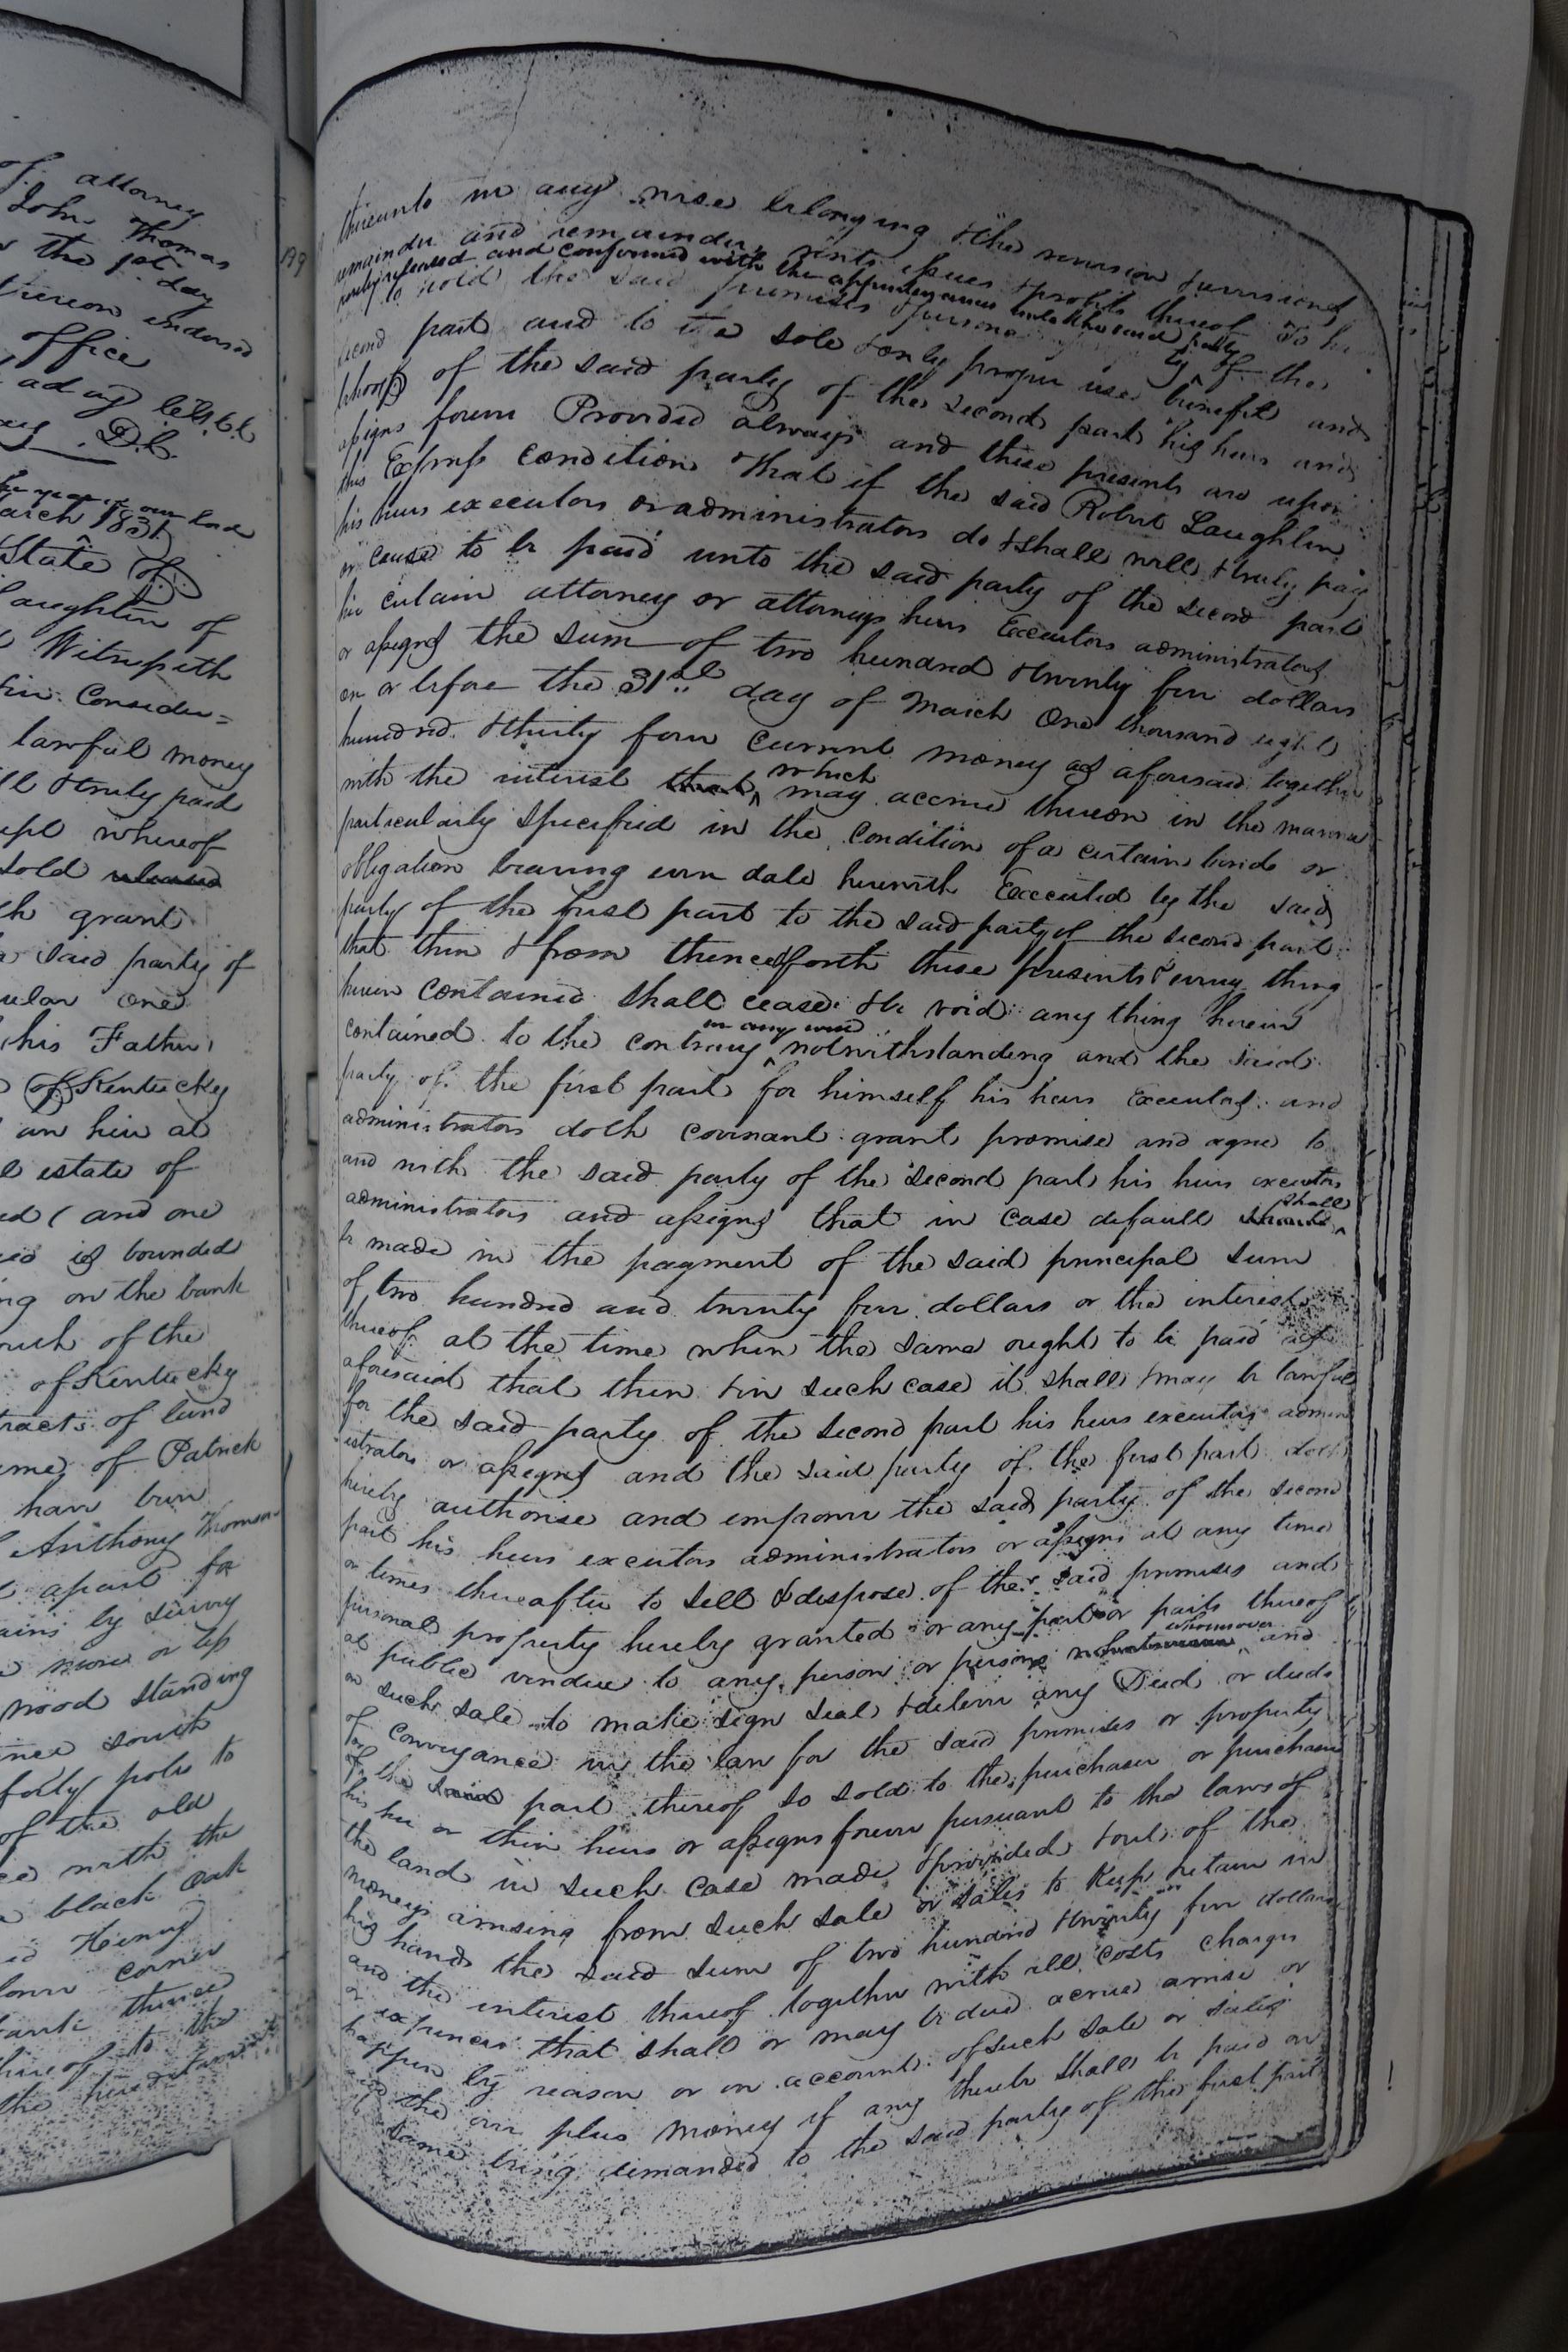 of attorney
John Thomas
the 1st day
thereon endorsed
office
D.C.
the year of our lord
March 1831
State of
Laughlin of
Witnesseth
Consider=
lawful money
& truly paid
whereof
sold released
grant
said party of
one
his Father
of Kentucky
an heir at
estate of
( and one
is bounded
on the bank
of the
of Kentucky
tracts of land
of Patrick
have been
Anthony Thomson
apart for
by survey
more or less
wood standing
south
forty poles to
of the old
with the
black oak
Henry
corner
thence
thereof to the
the
thereunto in any wise belonging & the reversion & reversions
remainder and remainders rents issues & profits thereof To
hereby released and confirmed with the appurtenances unto the said party
to hold the said premises & personal of the
second part and to the sole & only proper use benefit and
behoof of the said party of the second part his heirs and
assigns forever Provided always and these presents are upon
this Express condition that if the said Robert Laughlin
his heirs executors or administrators do & shall well & truly pay
or cause to be paid unto the said party of the second part
his certain attorney or attorneys heirs Executors administrators
or assigns the sum of two hundred & twenty five dollars
on or before the 31st day of March One thousand eight
hundred & thirty four current money as aforesaid together
with the interest which may accrue thereon in the manner
particularly specified in the condition of a certain bond or
obligation bearing even date herewith Executed by the said
party of the first part to the said party of the second part
that then & from thenceforth these presents & every thing
herein contained shall cease & be void any thing herein
contained to the contrary in any wise notwithstanding and the said
party of the first part for himself his heirs Executors and
administrators doth covenant grant promise and agree to
and with the said party of the second part his heirs executors
administrators and assigns that in case default should shall
be made in the payment of the said principal sum
of two hundred and twenty five dollars or the interest
thereof at the time when the same ought to be paid as
aforesaid that then & in such case it shall & may be lawful
for the said party of the second part his heirs executors admin
istrators or assigns and the said party of the first part doth
hereby authorise and empower the said party of the second
part his heirs executors administrators or assigns at any time
or times thereafter to sell & dispose of the said premises and
personal property hereby granted or any part or parts thereof
at public vendue to any person or persons whomsoever and
on such sale to make sign seal & deliver any Deed or deeds
of conveyance in the law for the said premises or property
or the said part thereof so sold to the purchaser or purchasers
his her or their heirs or assigns forever pursuant to the laws of
the land in such case made & provided & out of the
moneys arising from such sale or sales to Keep retain in
his hands the said sum of two hundred & twenty five dollars
and the interest thereof together with all costs charges
or expences that shall or may be due acrue arrise or
happen by reason or on account of such sale or sales
and the over plus money if any there be shall be paid on
same being demanded to the said party of the first part